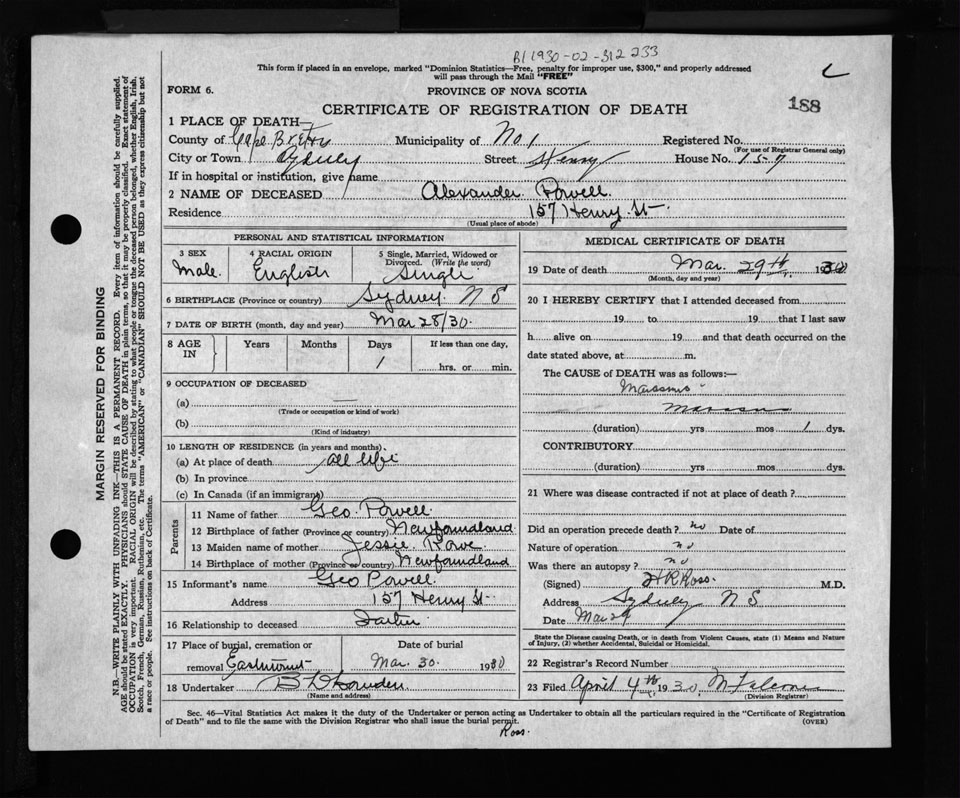 B11930-02-312 233
This form if placed in an envelope, marked "Dominion Statistics—Free, penalty for improper use, $300," and properly addressed
will pass through the Mail "FREE"
188
FORM 6.
PROVINCE OF NOVA SCOTIA
CERTIFICATE OF REGISTRATION OF DEATH
1 PLACE OF DEATH—
County of Cape Breton Municipality of No 1 Registered No.
(For use of Registrar General only)
City or Town Sydney Street Henry House No. 157
If in hospital or institution, give name
2 NAME OF DECEASED Alexander Powell
Residence 157 Henry St.
(Usual place of abode)
PERSONAL AND STATISTICAL INFORMATION
3 SEX Male
4 RACIAL ORIGIN English
5 Single, Married, Widowed or Divorced. (Write the word) Single
6 BIRTHPLACE (Province or country) Sydney N S
7 DATE OF BIRTH (month, day and year) Mar 28/30.
8 AGE IN Years Months Days 1 If less than one day, hrs. or min.
9 OCCUPATION OF DECEASED
(a) —
(Trade or occupation or kind of work)
(b)
(Kind of industry)
10 LENGTH OF RESIDENCE (in years and months).
(a) At place of death all life
(b) In province
(c) In Canada (if an immigrant)
Parents
11 Name of father Geo. Powell
12 Birthplace of father (Province or country) Newfoundland
13 Maiden name of mother Jessie Rowe
14 Birthplace of mother (Province or country) Newfoundland
15 Informant's name Geo Powell
Address 157 Henry St.
16 Relationship to deceased Father
17 Place of burial, cremation or removal Eastmount
Date of burial Mar. 30. 1930
18 Undertaker
(Name and address)
MEDICAL CERTIFICATE OF DEATH
19 Date of death Mar. 29th, 1930
(Month, day and year)
20 I HEREBY CERTIFY that I attended deceased from
19 to 19 that I last saw
h alive on 19 and that death occurred on the
date stated above, at m.
The CAUSE of DEATH was as follows:—
(duration) yrs mos 1 dys.
CONTRIBUTORY
(duration) yrs mos dys.
21 Where was disease contracted if not at place of death ?
Did an operation precede death ? no Date of
Nature of operation no
Was there an autopsy ? no
(Signed) H R Ross. M.D.
Address Sydney N S
Date Mar 29
State the Disease causing Death, or in death from Violent Causes, state (1) Means and Nature
of Injury, (2) whether Accidental, Suicidal or Homicidal.
22 Registrar's Record Number
23 Filed April 4th 1930
(Division Registrar)
Sec. 46—Vital Statistics Act makes it the duty of the Undertaker or person acting as Undertaker to obtain all the particulars required in the "Certificate of Registration
of Death" and to file the same with the Division Registrar who shall issue the burial permit. (OVER)
Ross.
MARGIN RESERVED FOR BINDING
N.B.—WRITE PLAINLY WITH UNFADING INK—THIS IS A PERMANENT RECORD. Every item of information should be carefully supplied.
AGE should be stated EXACTLY. PHYSICIANS should STATE CAUSE OF DEATH in plain terms, so that it may be properly classified. Exact statement of
OCCUPATION is very important. RACIAL ORIGIN will be described by stating to what people or tongue the deceased person belonged, whether English, Irish,
Scotch, French, German, Russian, Ruthenian, etc. The terms "AMERICAN" or "CANADIAN" SHOULD NOT BE USED as they express citizenship but not
a race or people. See instructions on back of Certificate.